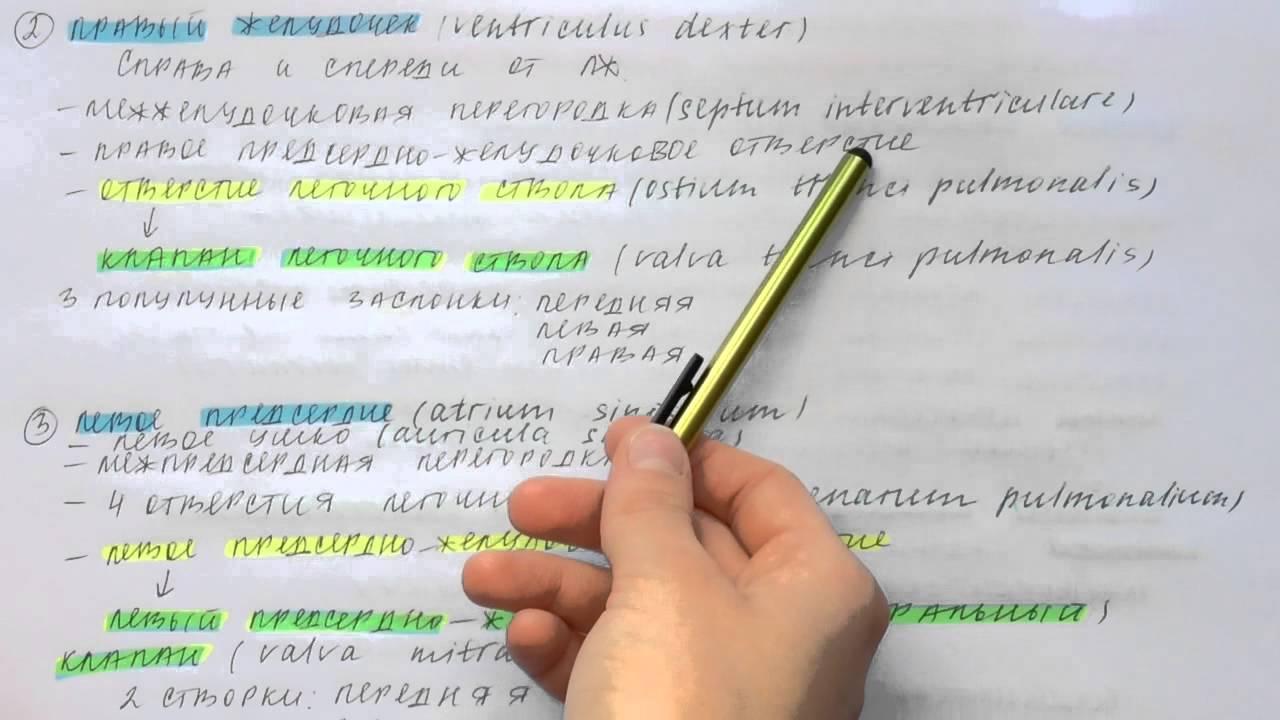 ② ПРАВЫЙ ЖЕЛУДОЧЕК (ventriculus dexter)
СПРАВА И СПЕРЕДИ ОТ ЛЖ.
- МЕЖЖЕЛУДОЧКОВАЯ ПЕРЕГОРОДКА (septum interventriculare)
- ПРАВОЕ ПРЕДСЕРДНО-ЖЕЛУДОЧКОВОЕ ОТВЕРСТИЕ
- ОТВЕРСТИЕ ЛЕГОЧНОГО СТВОЛА (ostium pulmonalis)
↓
КЛАПАН ЛЕГОЧНОГО СТВОЛА (valva pulmonalis)
3 ПОЛУЛУННЫЕ ЗАСЛОНКИ: ПЕРЕДНЯЯ
ЛЕВАЯ
ПРАВАЯ
③ ЛЕВОЕ ПРЕДСЕРДИЕ (atrium
- ЛЕВОЕ УШКО (auricula
- МЕЖПРЕДСЕРДНАЯ ПЕРЕГОРОДКА
- 4 ОТВЕРСТИЯ pulmonalium)
- ЛЕВОЕ ПРЕДСЕРДНО-
↓
ЛЕВЫЙ ПРЕДСЕРДНО-
КЛАПАН (valva
2 СТВОРКИ: ПЕРЕДНЯЯ